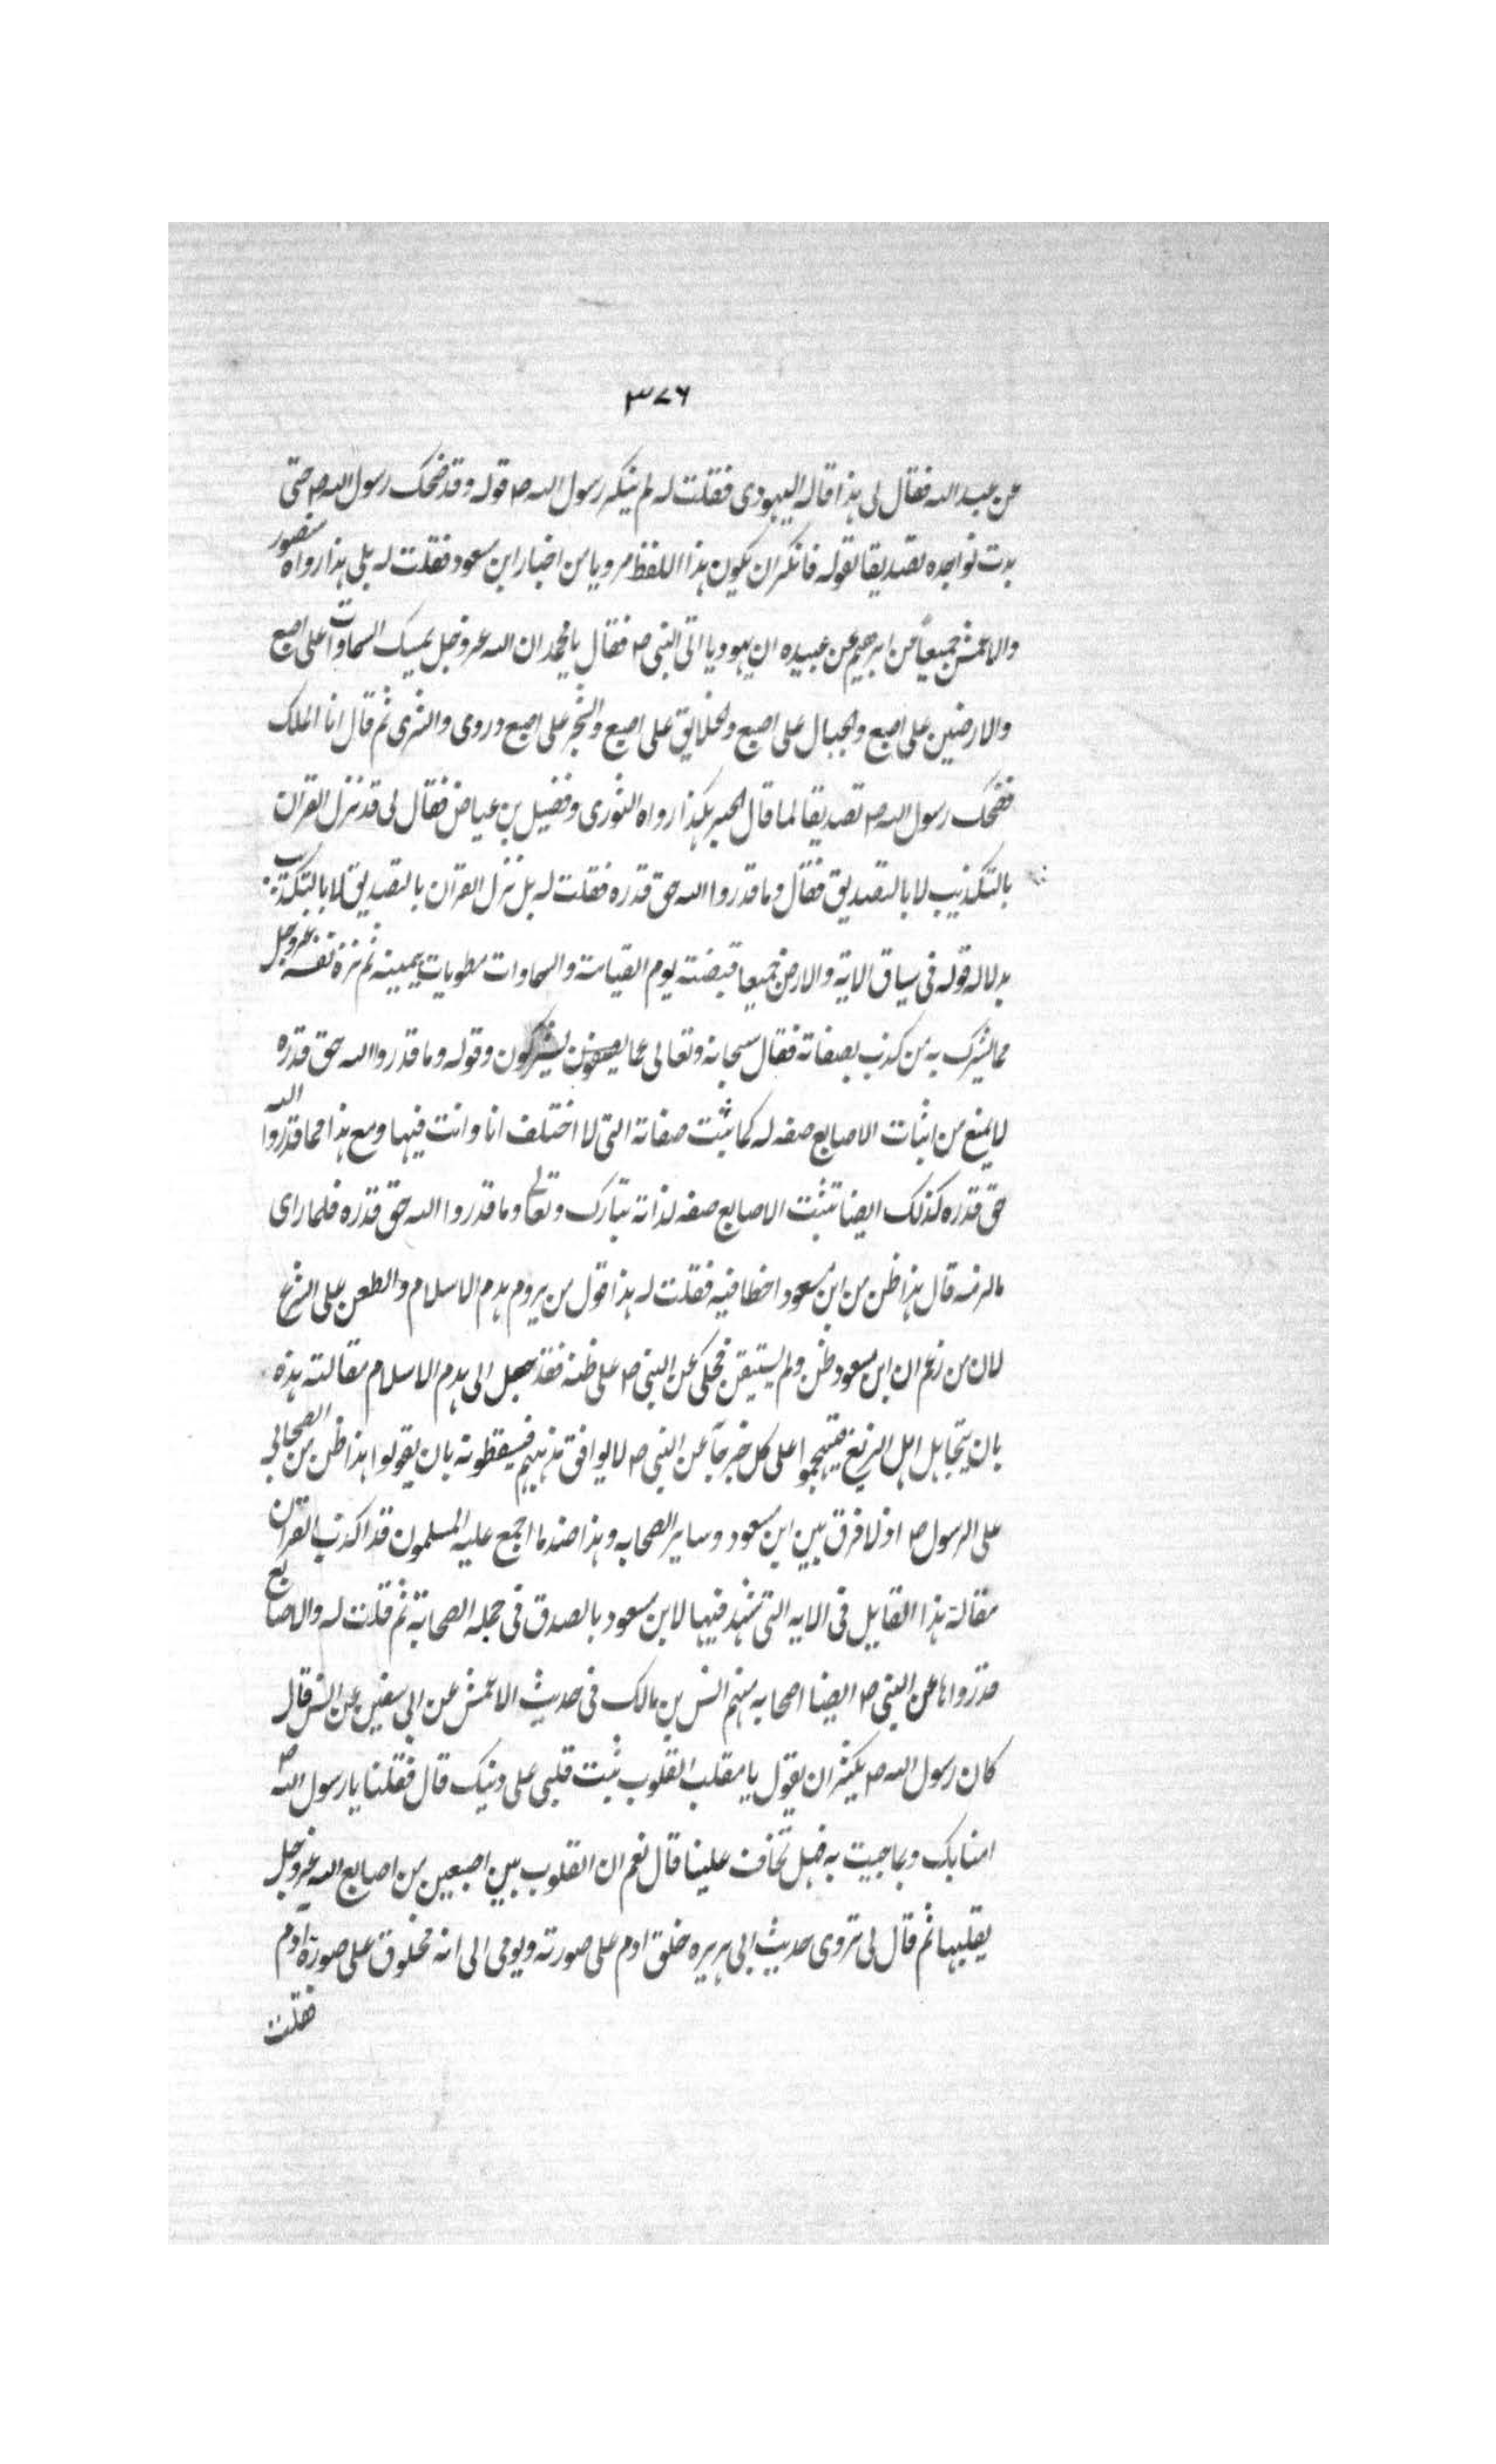 ۳۷۶
عن عبد الله فقال لی هذا قاله الیهودی فقلت له لم ینکر رسول الله ص قوله وقد ضحک رسول الله ص حتی
بدت نواجده تصدیقا لقوله فانکر ان یکون هذا اللفظ مرویا من اخبار ابن مسعود فقلت له بلی هذا رواه منصور
والاعمش جمیعاً عن ابرهیم عن عبیده ان یهودیا اتی النبی ص فقال یا محمد ان الله عز وجل یمسک السماوات علی اصبع
والارضین علی اصبع والجبال علی اصبع والخلایق علی اصبع والشجر علی اصبع وروی والثری ثم قال انا الملک
فضحک رسول الله ص تصدیقا لما قال الحبر هکذا رواه الثوری وفضیل بن عیاض فقال لی قد نزل القران
بالتکذیب لا بالتصدیق فقال وما قدروا الله حق قدره فقلت له بل نزل القران بالتصدیق لا بالتکذیب
بدلاله قوله فی سیاق الایة والارض جمیعا قبضته یوم القیامة والسماوات مطویات بیمینه ثم نزه نفسه عز وجل
عما یشرک به من کذب بصفاته فقال سبحانه وتعالی عما یصفون یشرکون وقوله وما قدروا الله حق قدره
لا یمنع من اثبات الاصابع صفه له کما ثبت صفاته التی لا اختلف انا وانت فیها ومع هذا فما قدروا الله
حق قدره کذلک ایضا نثبت الاصابع صفه لذاته تبارک وتعالی وما قدروا الله حق قدره فلما رای
ما لزمه قال هذا ظن من ابن مسعود اخطا فیه فقلت له هذا قول من یروم هدم الاسلام والطعن علی الشرع
لان من زعم ان ابن مسعود ظن ولم یستیقن فحکی عن النبی ص علی ظنه فقد جعل الی هدم الاسلام مقالته هذه
بان یتجاهل اهل الزیغ فیتهجموا علی کل خبر جآ عن النبی ص لا یوافق مذهبهم فیسقطونه بان یقولوا هذا ظن من الصحابی
علی الرسول ص اذ لا فرق بین ابن مسعود وسایر الصحابه وهذا ضد ما اجمع علیه المسلمون قد اکذب القران
مقالة هذا القایل فی الایه التی شهد فیها لابن مسعود بالصدق فی جمله الصحابة ثم قلت له والاصابع
قد رواها عن النبی ص ایضا اصحابه منهم انس بن مالک فی حدیث الاعمش عن ابی سفین عن انس قال
کان رسول الله ص یکثر ان یقول یا مقلب القلوب ثبت قلبی علی دینک قال فقلنا یا رسول الله ص
امنا بک وبما جیت به فهل تخاف علینا قال نعم ان القلوب بین اصبعین من اصابع الله عز وجل
یقلبها ثم قال لی تروی حدیث ابی هریره خلق ادم علی صورته ویومی الی انه مخلوق علی صورة آدم
فقلت